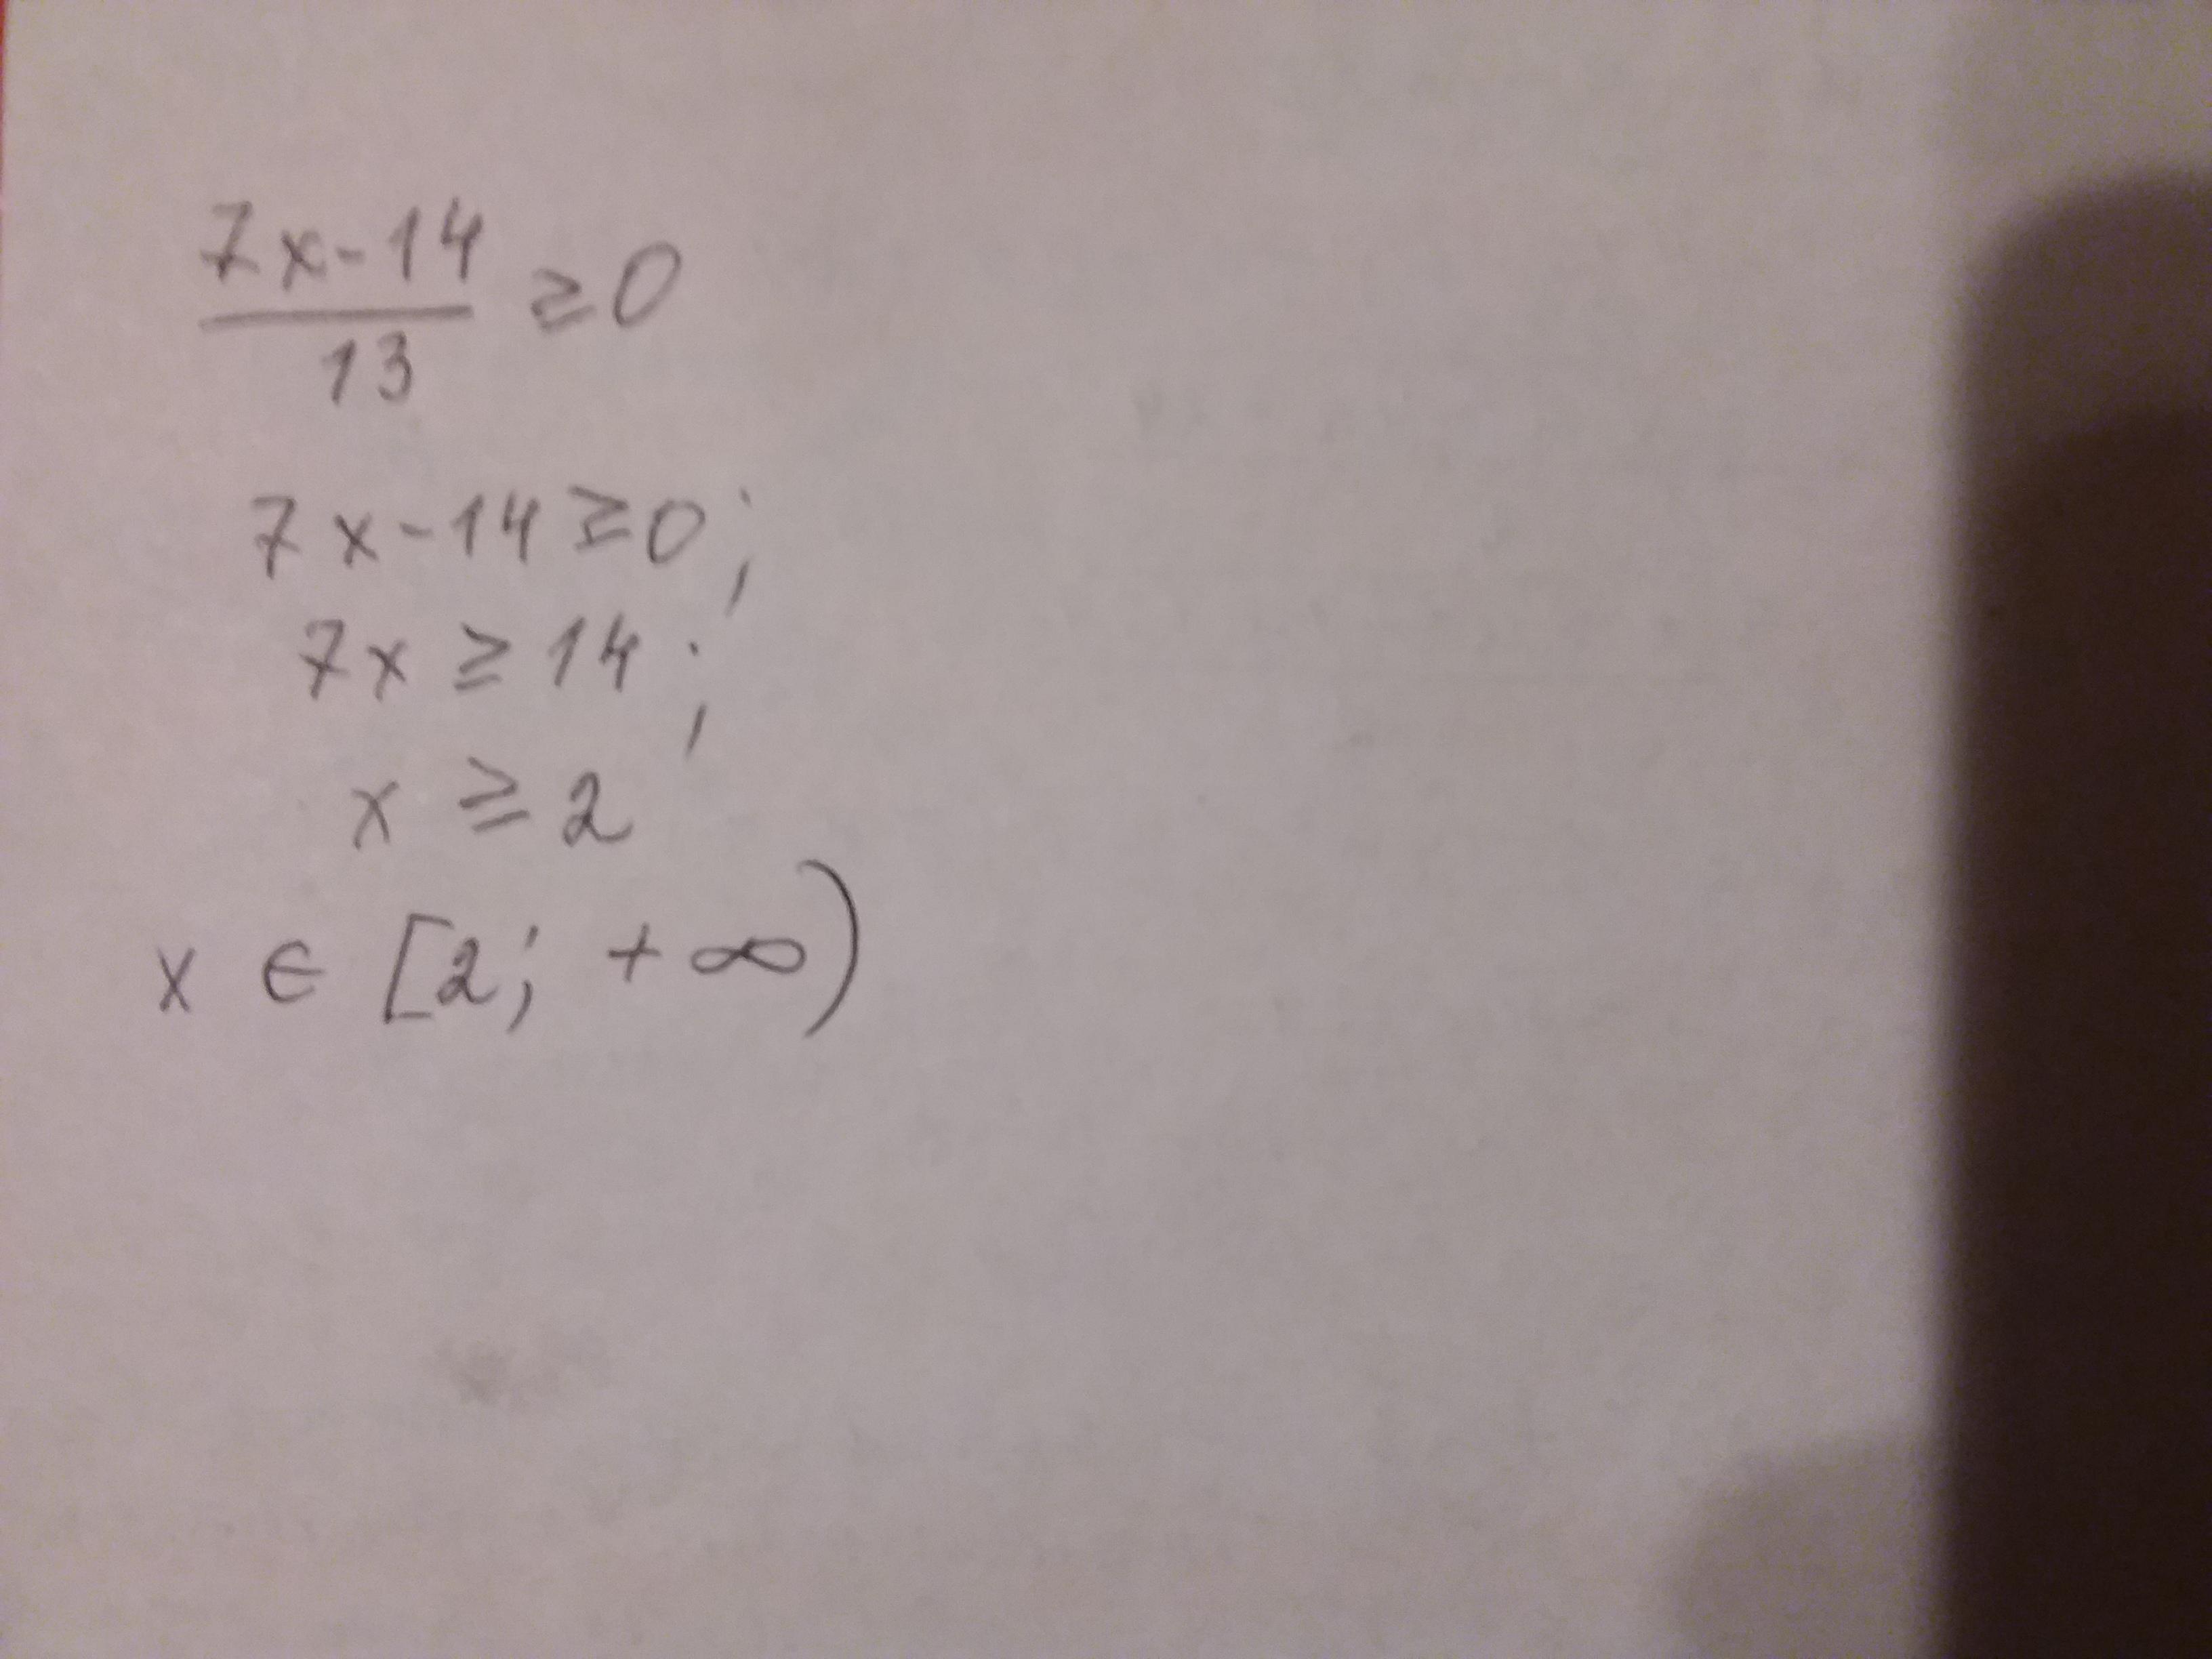 7x-14
13
≥0
7x-14≥0;
7x ≥ 14;
x ≥ 2
x ∈ [2; +∞)